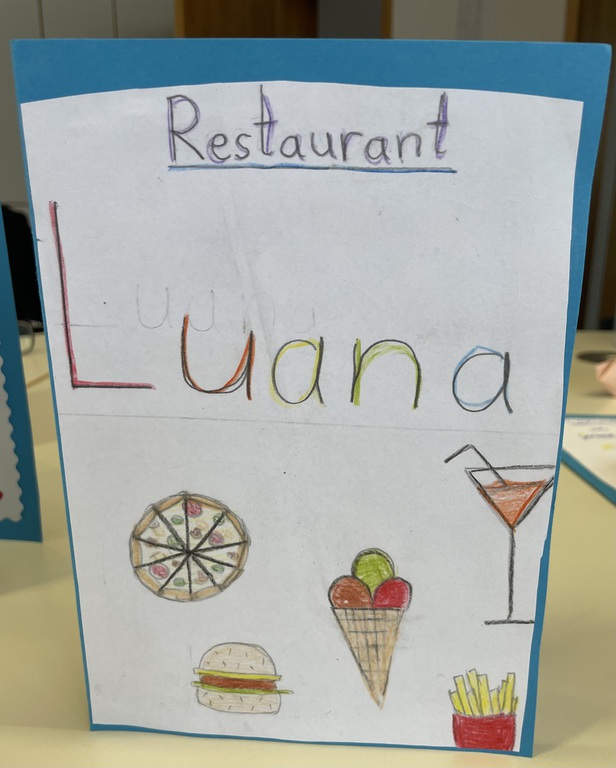 Restaurant
Luana